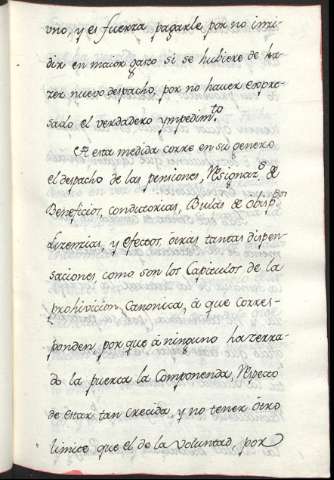 uno, y es fuerza pagarle por no inci-
dir en maior gasto si se hubiere de ha-
zer nuevo despacho, por no hauer expre-
sado el verdadero ympedim.to
A esta medida corre en su genero
el despacho de las pensiones, Resignaz.s de
Beneficios, condutorias, Bulas de obisp.os
Lizenzias, y efectos, otras tantas dispen-
saciones como son los Capitulos de la
prohivicion Canonica, á que corres-
ponden por que á ninguno ha zerra-
do la puerta la Componenda, Respecto
de estar tan crecida, y no tener otro
limite que el de la voluntad, por